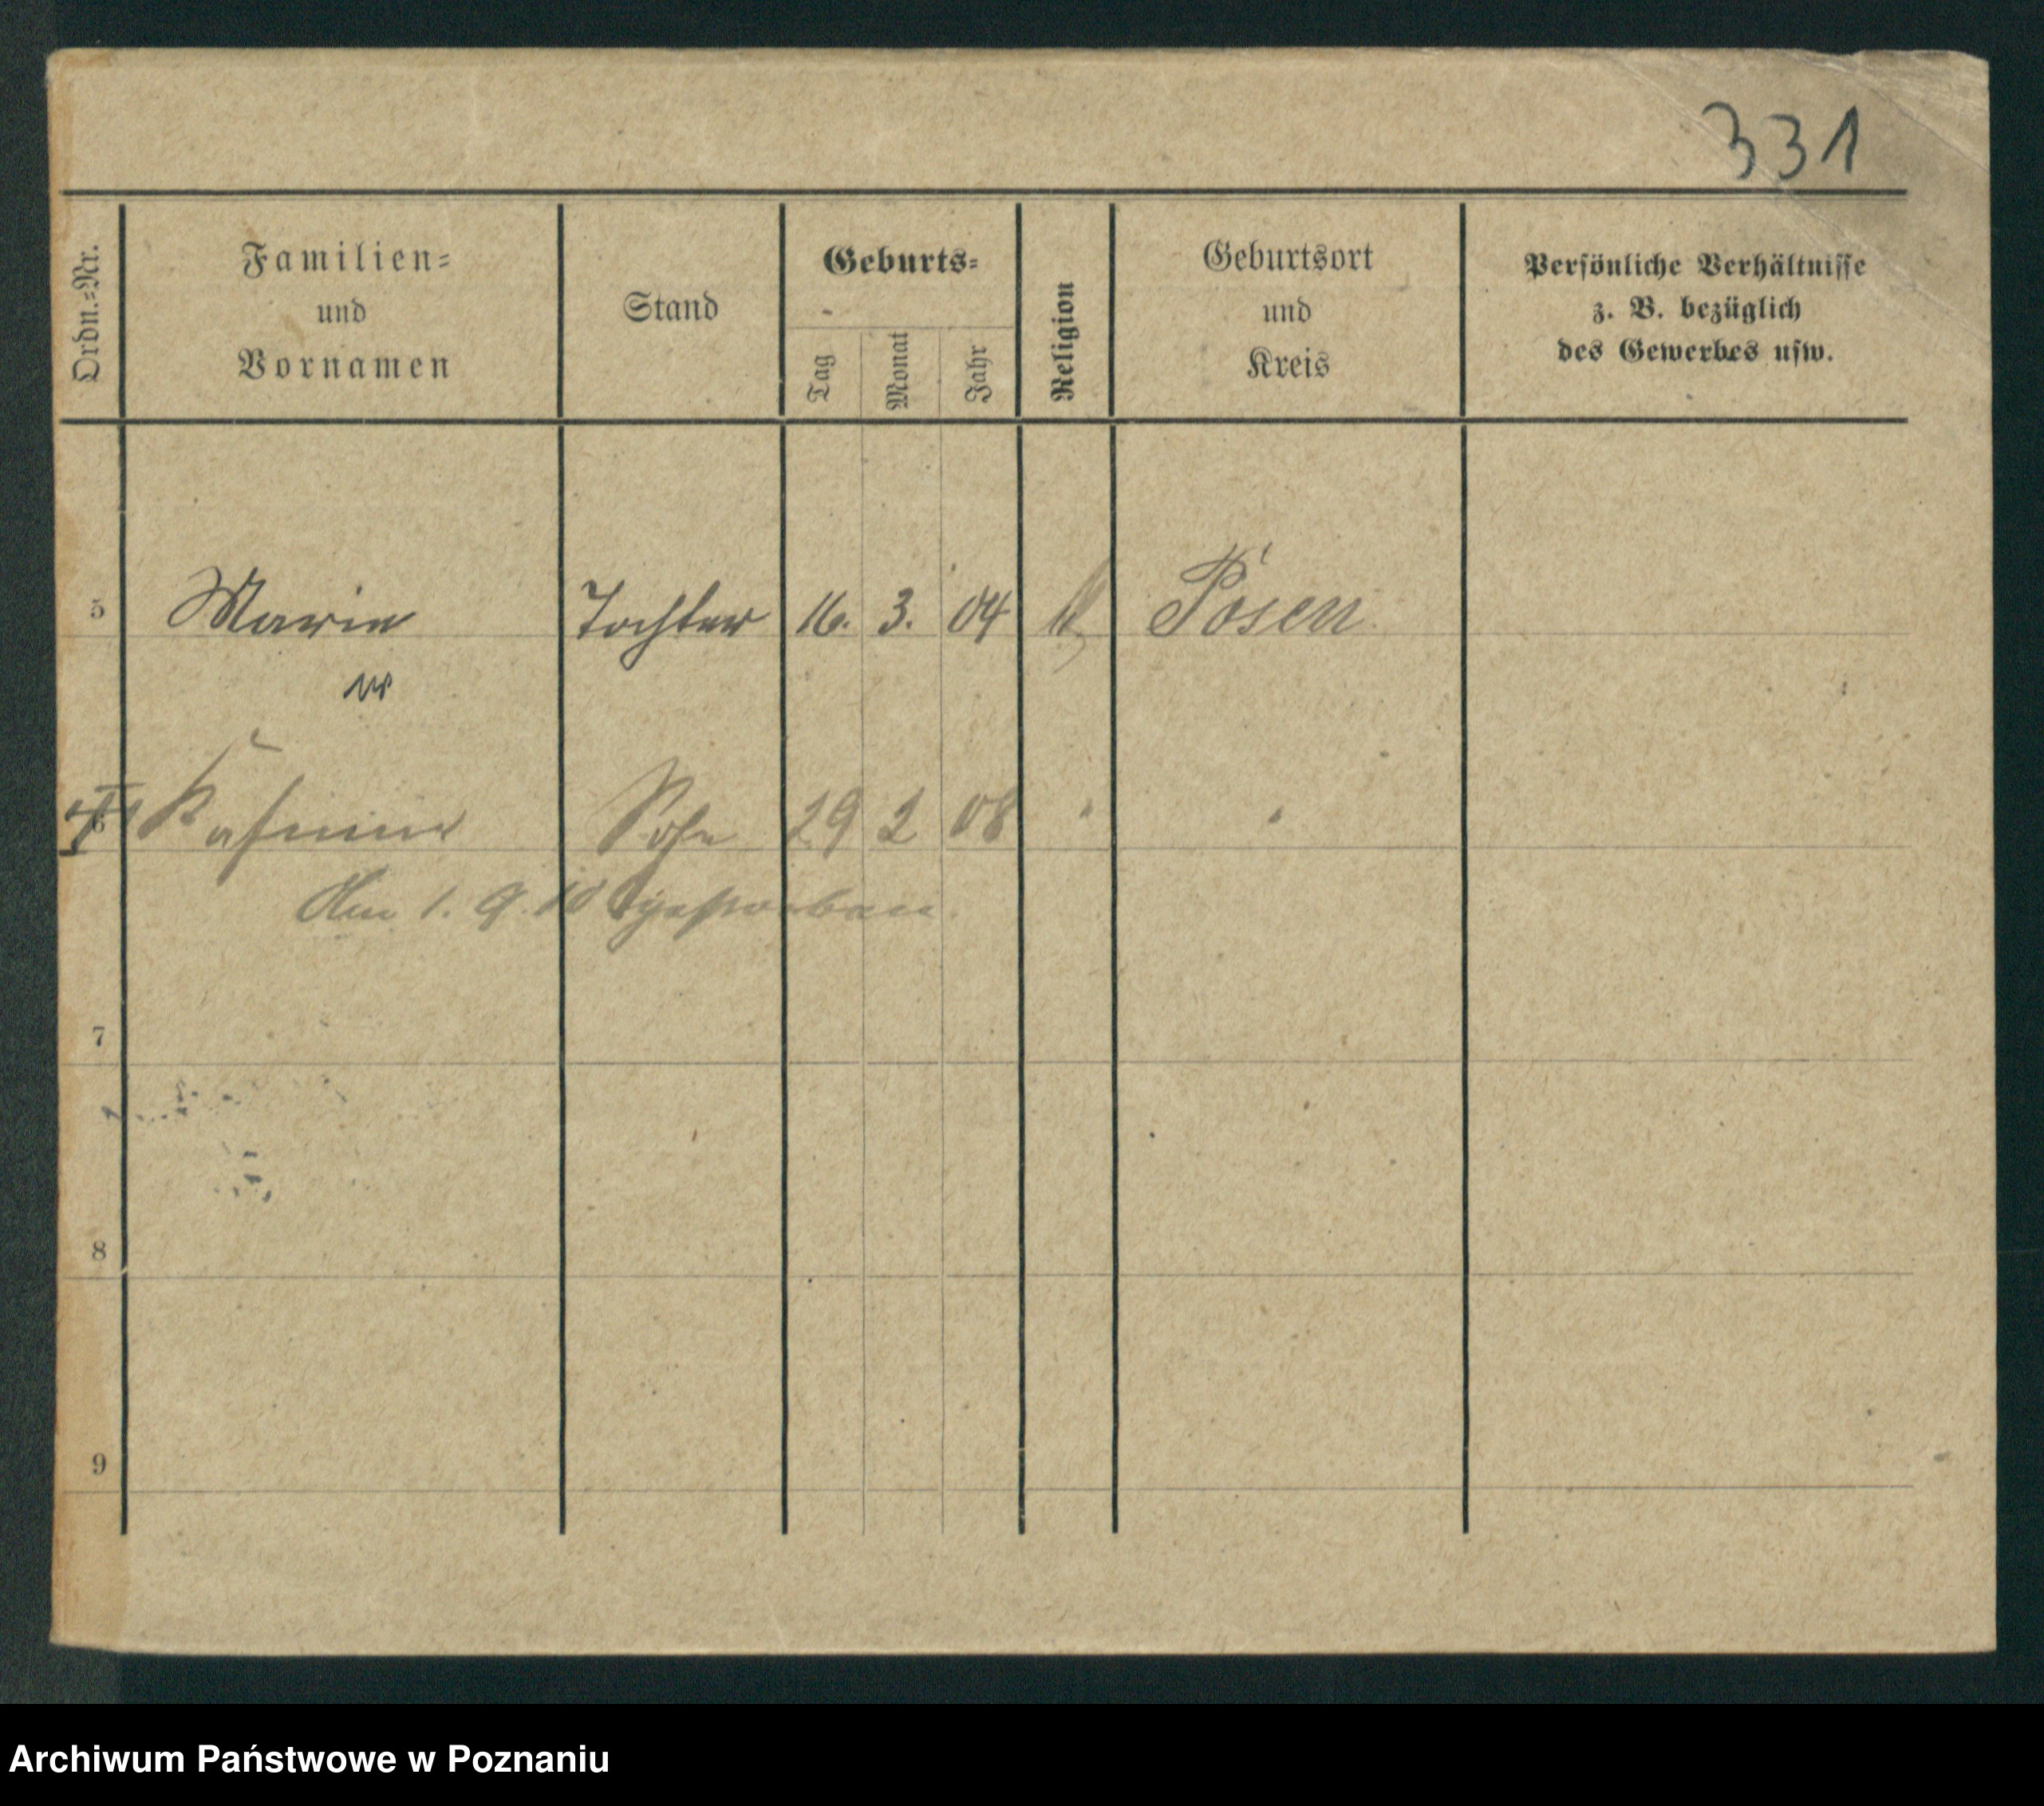 331
Ordn.=Nr.
Familien= und Vornamen
Stand
Geburts=
Tag
Monat
Jahr
Religion
Geburtsort und Kreis
Persönliche Verhältnisse z. B. bezüglich des Gewerbes usw.
5 Marie Tochter 16. 3. 04 Posen
6 Kasimir Sohn 29 2 08 " "
Am 1. 9. 10 gestorben
7
8
9
Archiwum Państwowe w Poznaniu